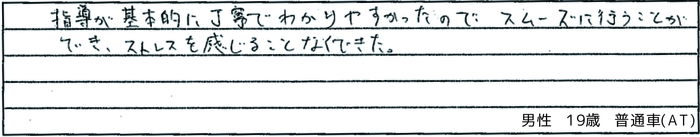 指導が基本的に丁寧でわかりやすかったので、スムーズに行うことが
でき、ストレスを感じることなくできた。
男性 19歳 普通車(AT)